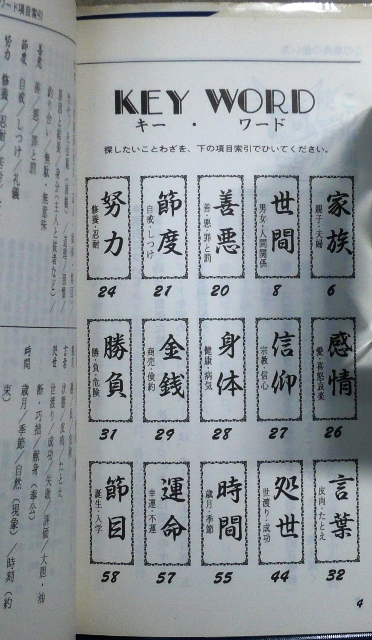 KEY WORD
キー・ワード
探したいことわざを、下の項目索引でひいてください。
家族
親子・夫婦
6
世間
男女・人間関係
8
善悪
善・悪・罪と罰
20
節度
自戒・しつけ
21
努力
修養・忍耐
24
感情
愛・喜怒哀楽
26
信仰
宗教・信心
27
身体
健康・病気
28
金銭
商売・倹約
29
勝負
勝・負・危険
31
言葉
皮肉・たとえ
32
処世
世渡り・成功
44
時間
歳月・季節
55
運命
幸運・不運
57
節目
誕生・入学
58
4
ワード項目索引
善悪 善／悪／罪と罰
節度 自戒／しつけ／礼儀
時間 歳月／季節／自然（現象）／時刻（約
束）